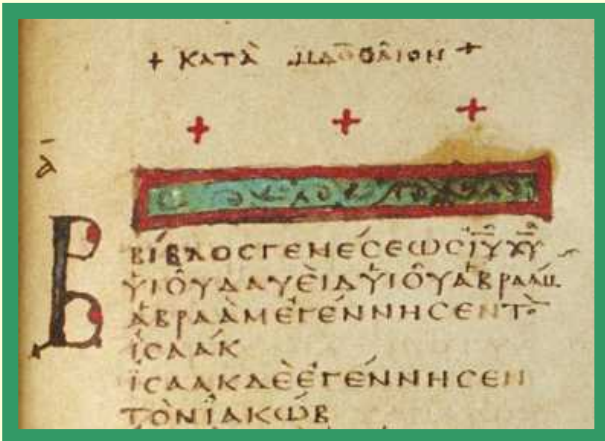 + ΚΑΤᾺ ΜΑΘΘΑΙΟΝ +
+ + +
ᾱ
ΒΊΒΛΟΣ ΓΕΝΈΣΕΩΣ ΙΥ ΧΥ
ΥΙΟΥ ΔΑΥΕΙΔ ΥΙΟΥ ΑΒΡΑΑΜ
ΑΒΡΑᾺΜ ΕΓΈΝΝΗΣΕΝ ΤΟΝ
ΪΣΑΆΚ
ΪΣΑΑΚ ΔΕ ΕΓΈΝΝΗΣΕΝ
ΤῸΝ ΪΑΚΏΒ